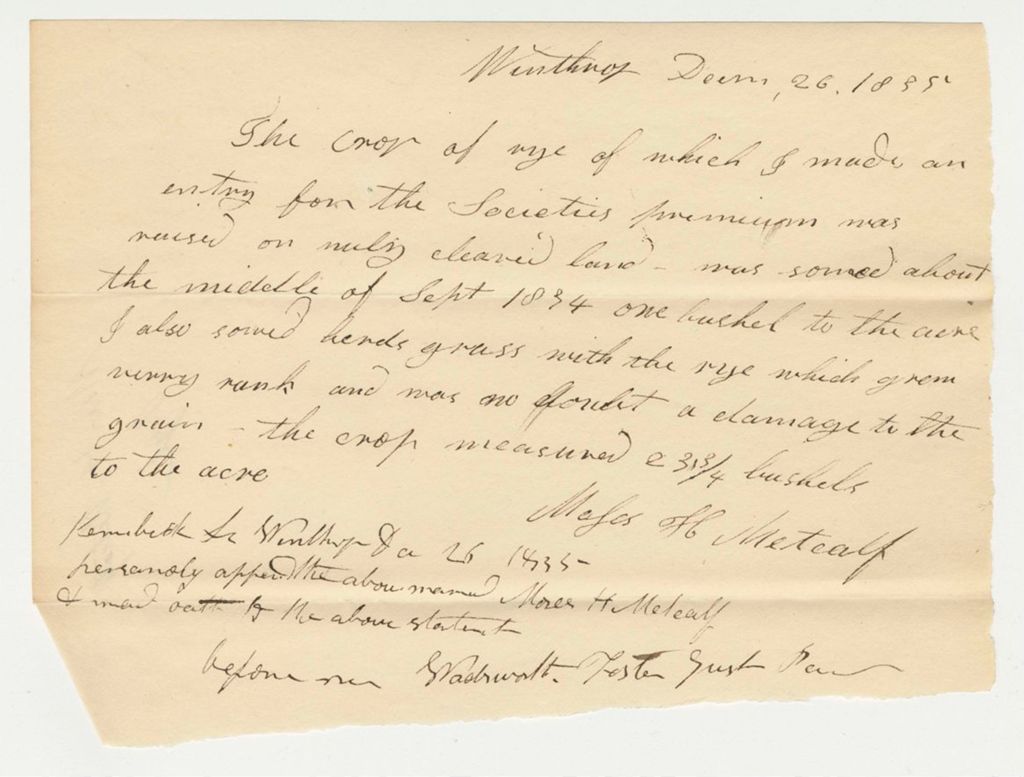 Winthrop Decm, 26. 1835
The crop of rye of which I made an
entry for the Societies premium was
raised on nuly cleared land - was sowed about
the middle of Sept 1834 one bushel to the acre
I also sowed herds grass with the rye which grew
verry rank and was no doubt a damage to the
grain - the crop measured 33/4 bushels
to the acre
Moses H Metcalf
Kennebeck Ss Winthrop Dec 26 1835
personaly appeard the above named Moses H Metcalf
& mad oath to the above statement
before me Wadsworth Foster Just Peace